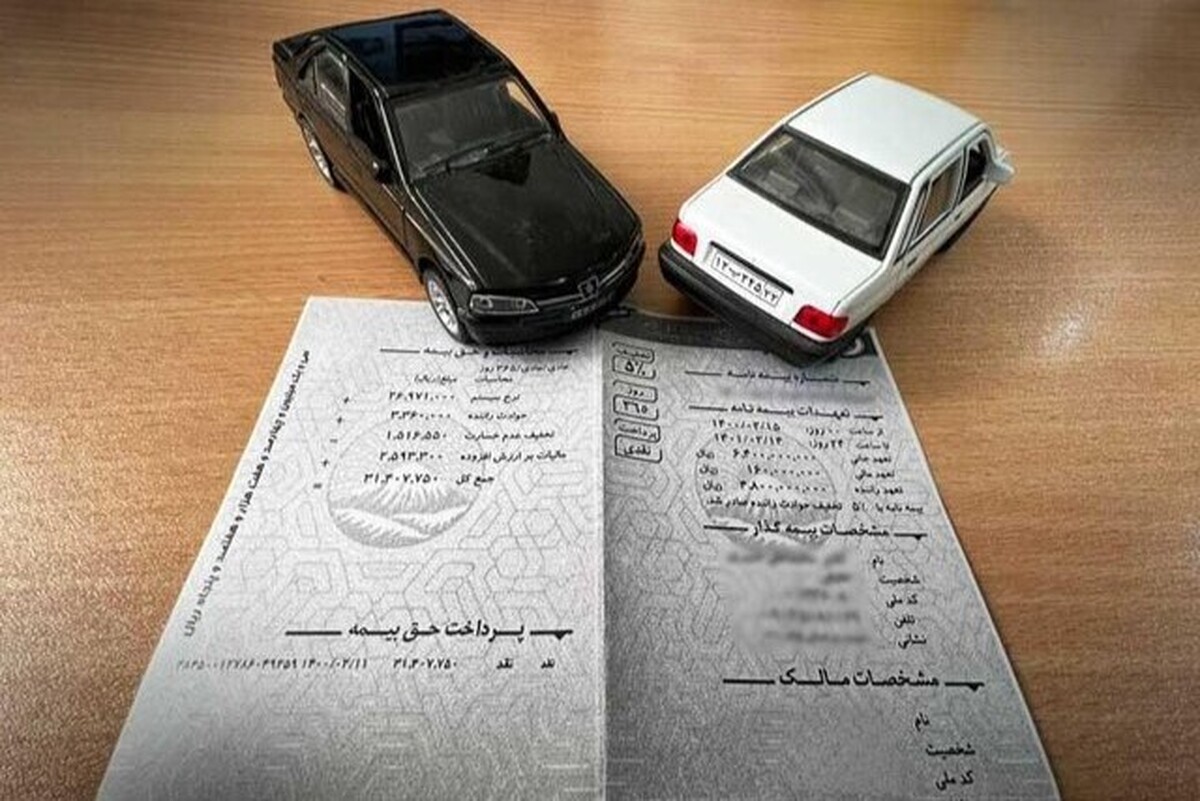 شماره بیمه نامه
تخفیف
۵٪
روز
۳۶۵
پرداخت
نقدی
تعهدات بیمه نامه
از ساعت ۰۰ روز: ۱۴۰۰/۰۲/۱۵
تا ساعت ۲۴ روز: ۱۴۰۱/۰۲/۱۴
تعهد جانی ۶,۴۰۰,۰۰۰,۰۰۰ ریال
تعهد مالی ۱۶۰,۰۰۰,۰۰۰ ریال
تعهد راننده ۴,۸۰۰,۰۰۰,۰۰۰ ریال
بیمه نامه با ۵٪ تخفیف حوادث راننده صادر شد.
مشخصات بیمه گذار
نام
شخصیت
کد ملی
تلفن
نشانی
مشخصات مالک
نام
شخصیت
کد ملی
محاسبات و حق بیمه
عادی/عادی/۳۶۵ روز
محاسبات مبلغ(ریال)
نرخ سیستم ۲۶,۹۷۱,۰۰۰ +
حوادث راننده ۳,۳۶۰,۰۰۰ +
تخفیف عدم خسارت ۱,۵۱۶,۵۵۰ -
مالیات بر ارزش افزوده ۲,۵۹۳,۳۰۰ +
جمع کل ۳۱,۴۰۷,۷۵۰ =
سی و یک میلیون و چهارصد و هفت هزار و هفتصد و پنجاه ریال
پرداخت حق بیمه
نقد نقد ۳۱,۴۰۷,۷۵۰ ۱۴۰۰/۰۲/۱۱